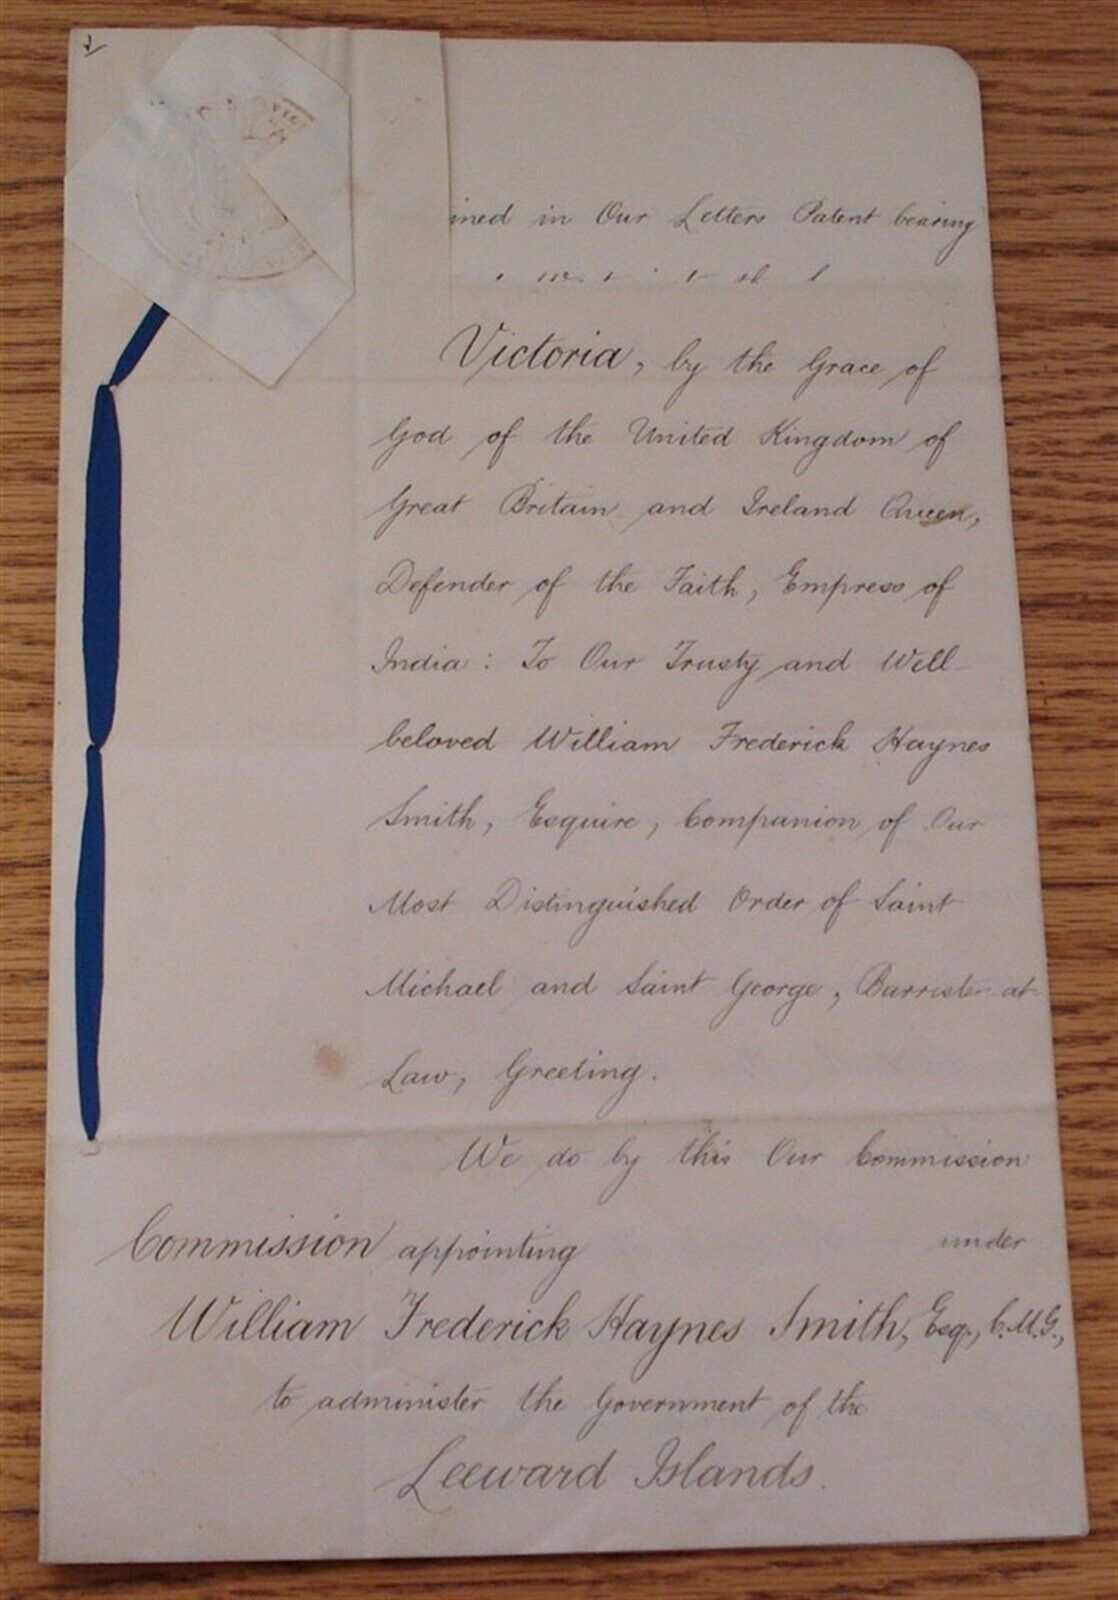 in Our Letters Patent bearing
Victoria, by the Grace of
God of the United Kingdom of
Great Britain and Ireland Queen,
Defender of the Faith, Empress of
India: To Our Trusty and Well-
beloved William Frederick Haynes
Smith, Esquire, Companion of Our
Most Distinguished Order of Saint
Michael and Saint George, Barrister at
Law, Greeting.
We do by this Our Commission
under
Commission appointing
William Frederick Haynes Smith, Esq., C.M.G.,
to administer the Government of the
Leeward Islands.